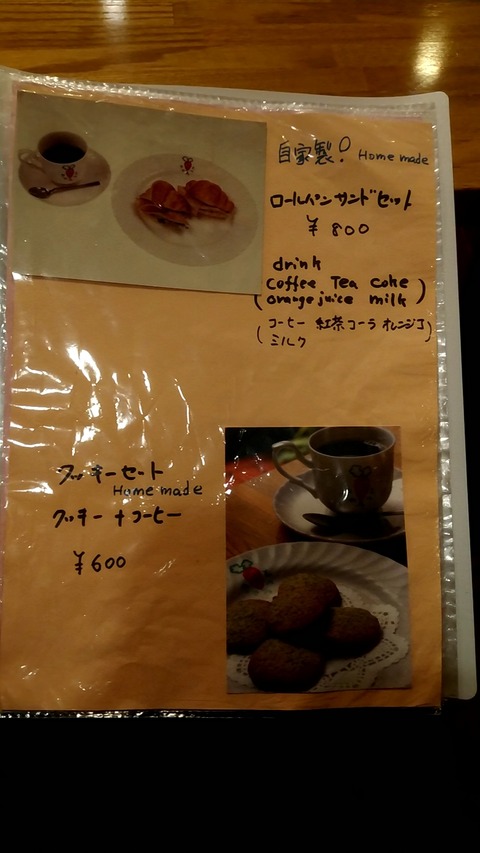 自家製! Home made
ロールパンサンドセット
¥800
drink
(coffee Tea coke
orange juice milk)
(コーヒー 紅茶 コーラ オレンジJ
ミルク)
クッキーセート
Home made
クッキー+コーヒー
¥600